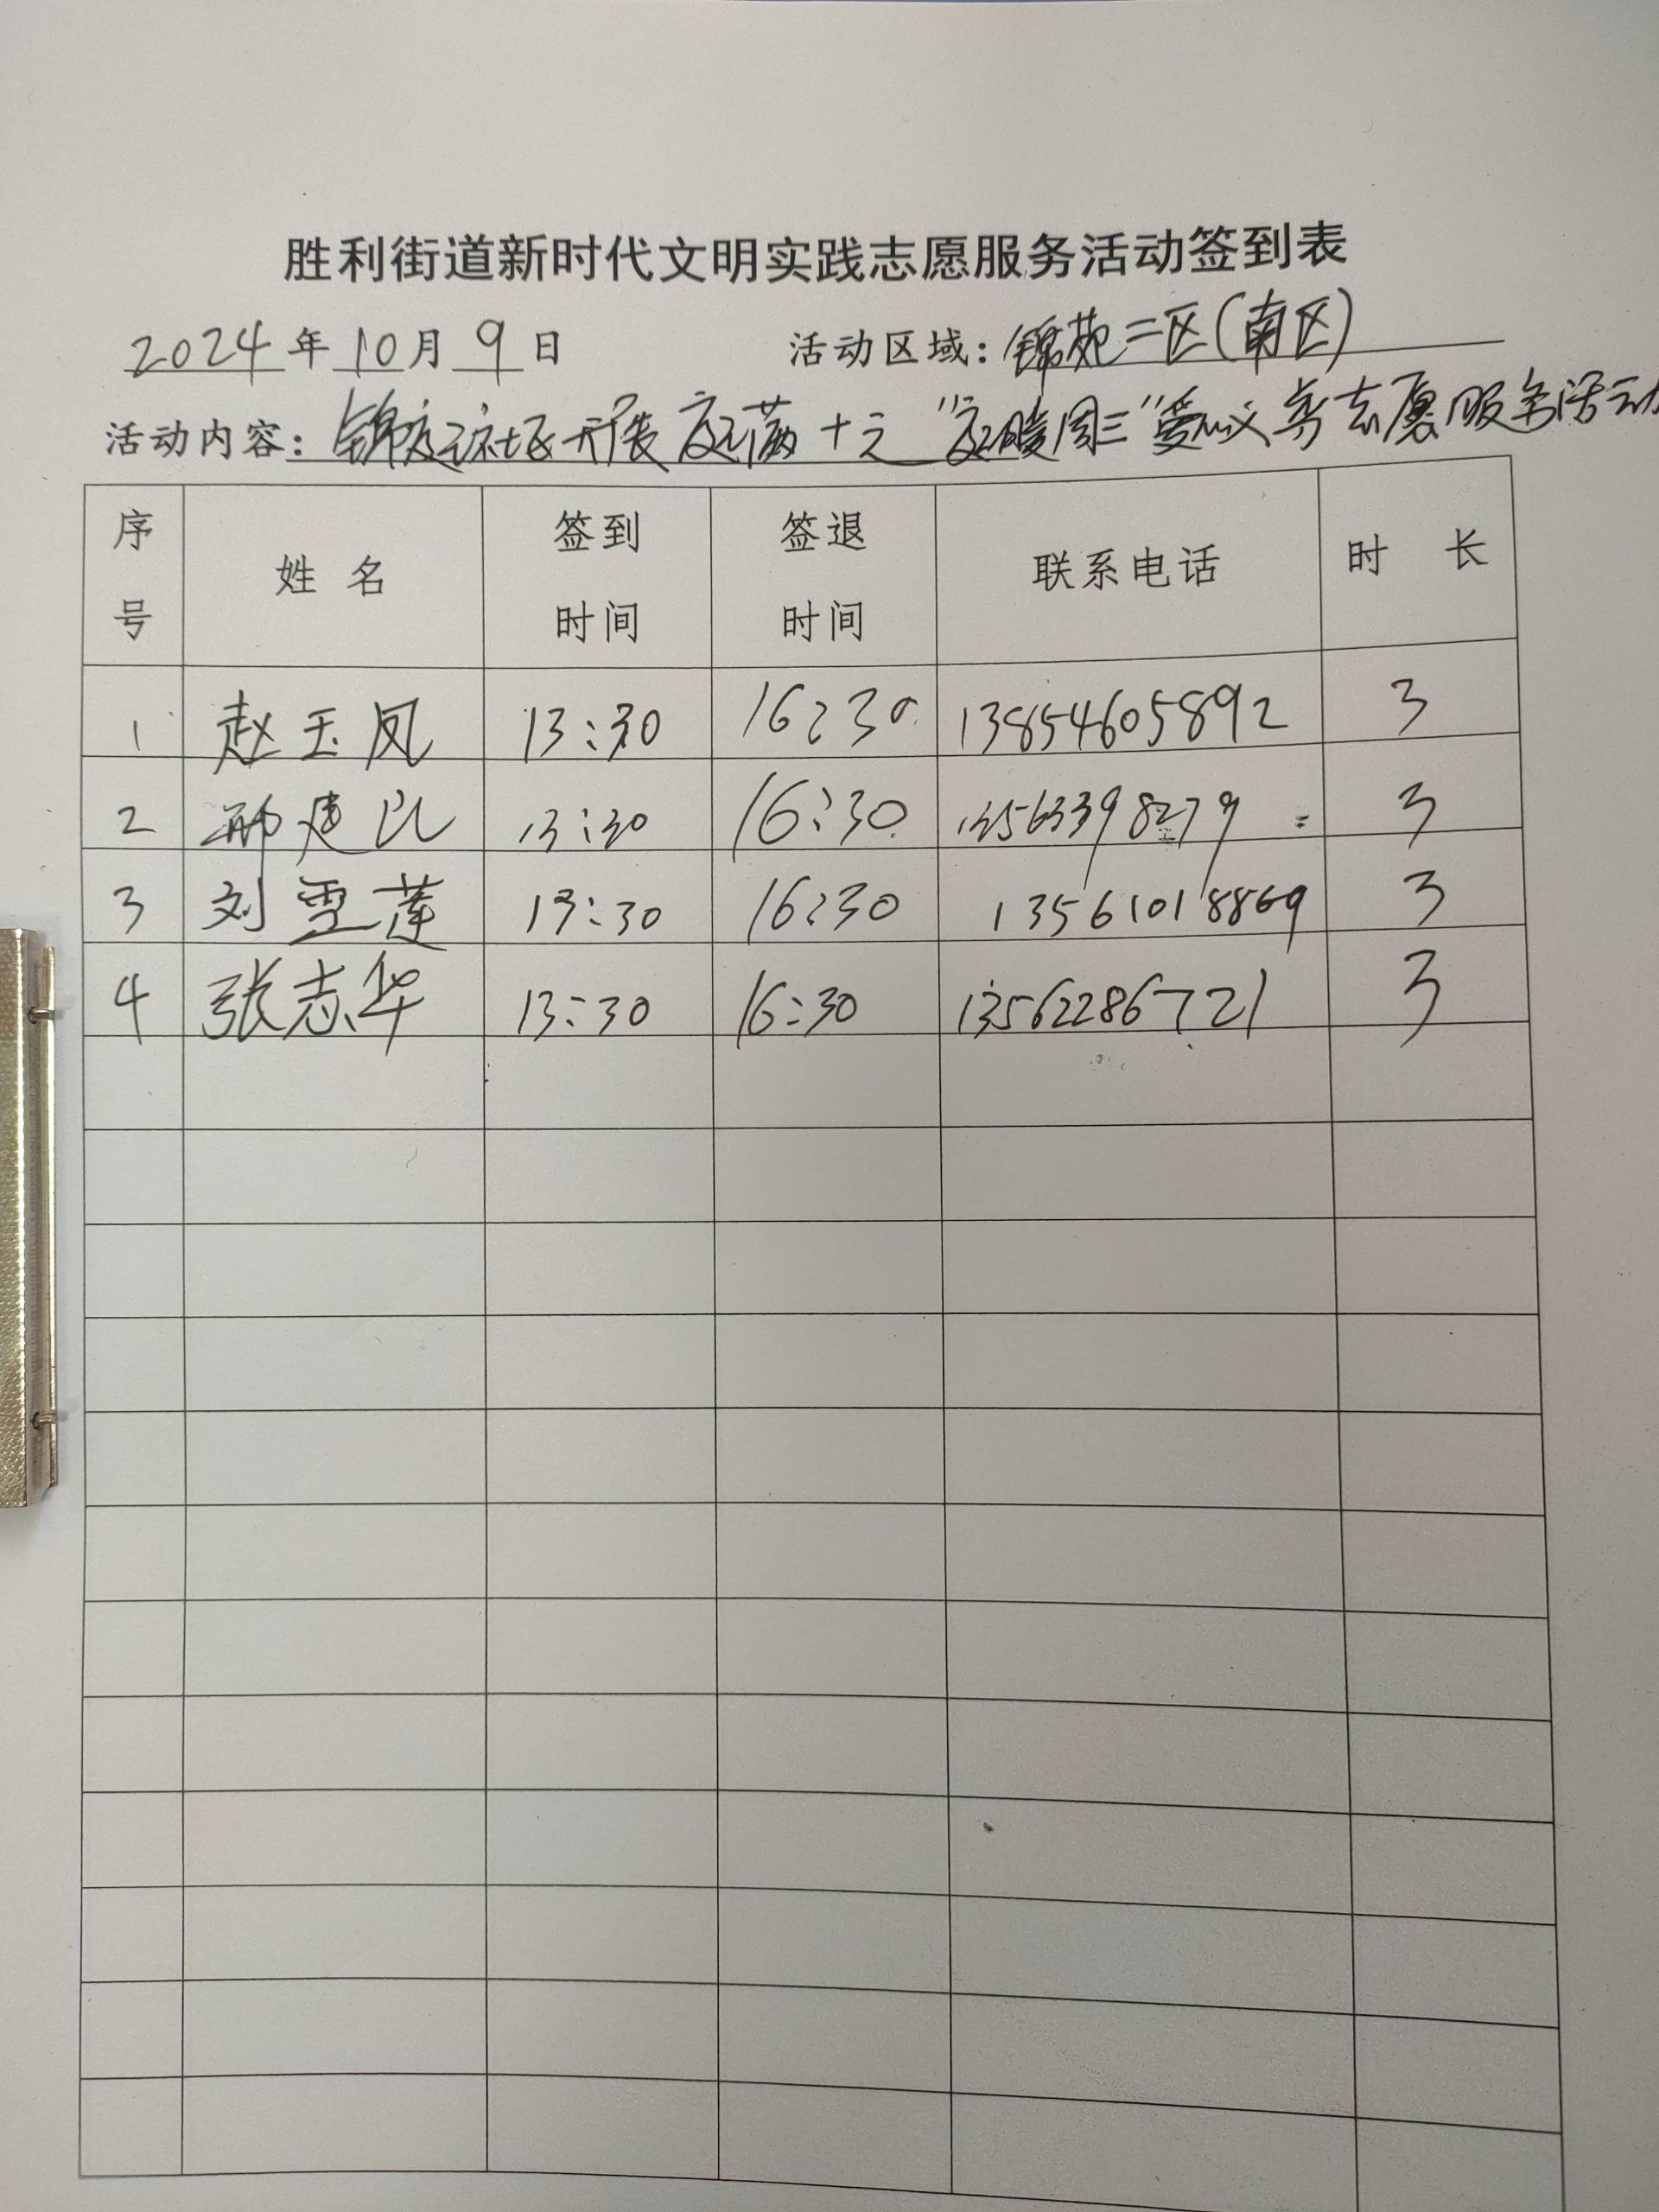 胜利街道新时代文明实践志愿服务活动签到表
2024年10月9日 活动区域：锦苑二区（南区）
活动内容：锦苑社区开展 满十元 "暖周三"爱心义剪志愿服务活动
序号 姓名 签到时间 签退时间 联系电话 时长
1 赵玉凤 13:30 16:30 13854605892 3
2 邢建民 13:30 16:30 13563398279 3
3 刘雪莲 13:30 16:30 13561018869 3
4 张志华 13:30 16:30 13562286721 3